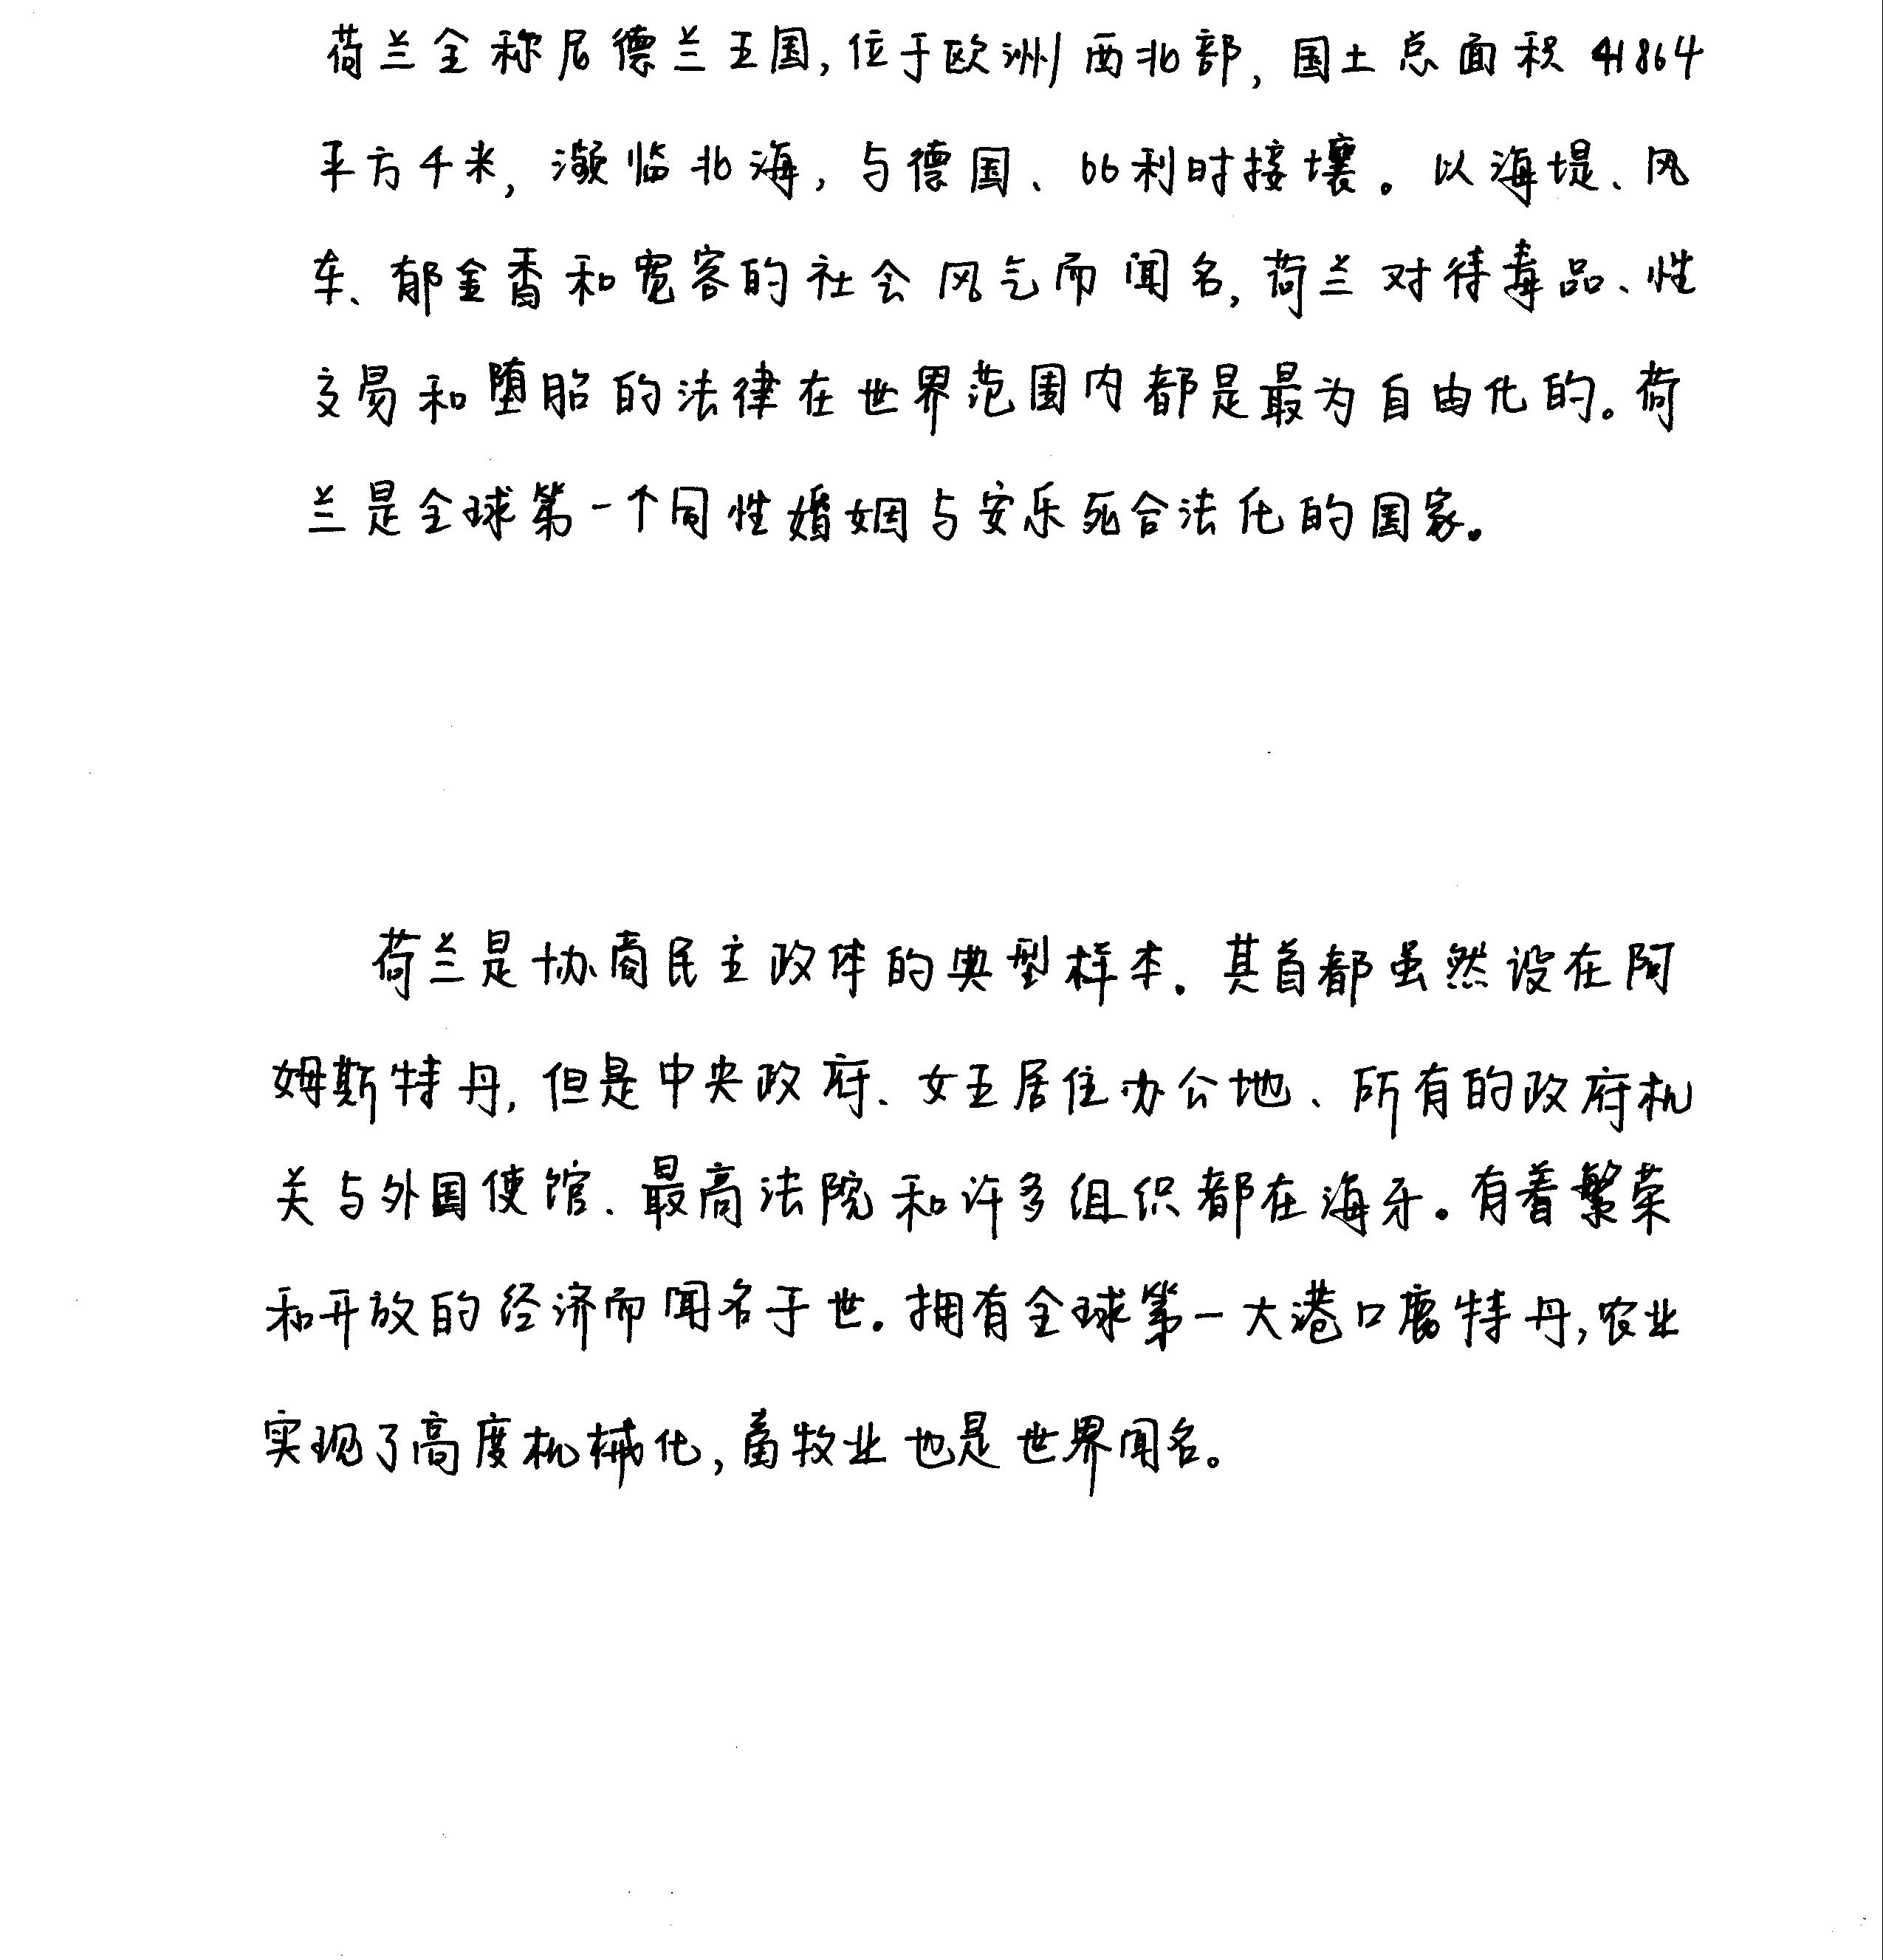 荷兰全称尼德兰王国,位于欧洲西北部,国土总面积41864
平方千米,濒临北海,与德国、比利时接壤。以海堤、风
车、郁金香和宽容的社会风气而闻名,荷兰对待毒品、性
交易和堕胎的法律在世界范围内都是最为自由化的。荷
兰是全球第一个同性婚姻与安乐死合法化的国家。
荷兰是协商民主政体的典型样本。其首都虽然设在阿
姆斯特丹,但是中央政府、女王居住办公地、所有的政府机
关与外国使馆、最高法院和许多组织都在海牙。有着繁荣
和开放的经济而闻名于世。拥有全球第一大港口鹿特丹,农业
实现了高度机械化,畜牧业也是世界闻名。